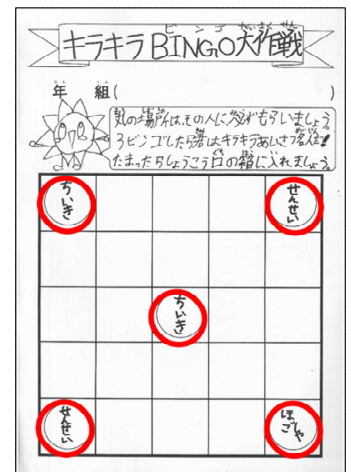 キラキラBINGO大作戦
ビンゴ だいさくせん
年 組( )
丸の場所は、その人に必ずもらいましょう。
3ビンゴしたら君はキラキラあいさつ名人!!
たまったらしょうこう口の箱に入れましょう。
ちいき せんせい
ちいき
せんせい ほごしゃ